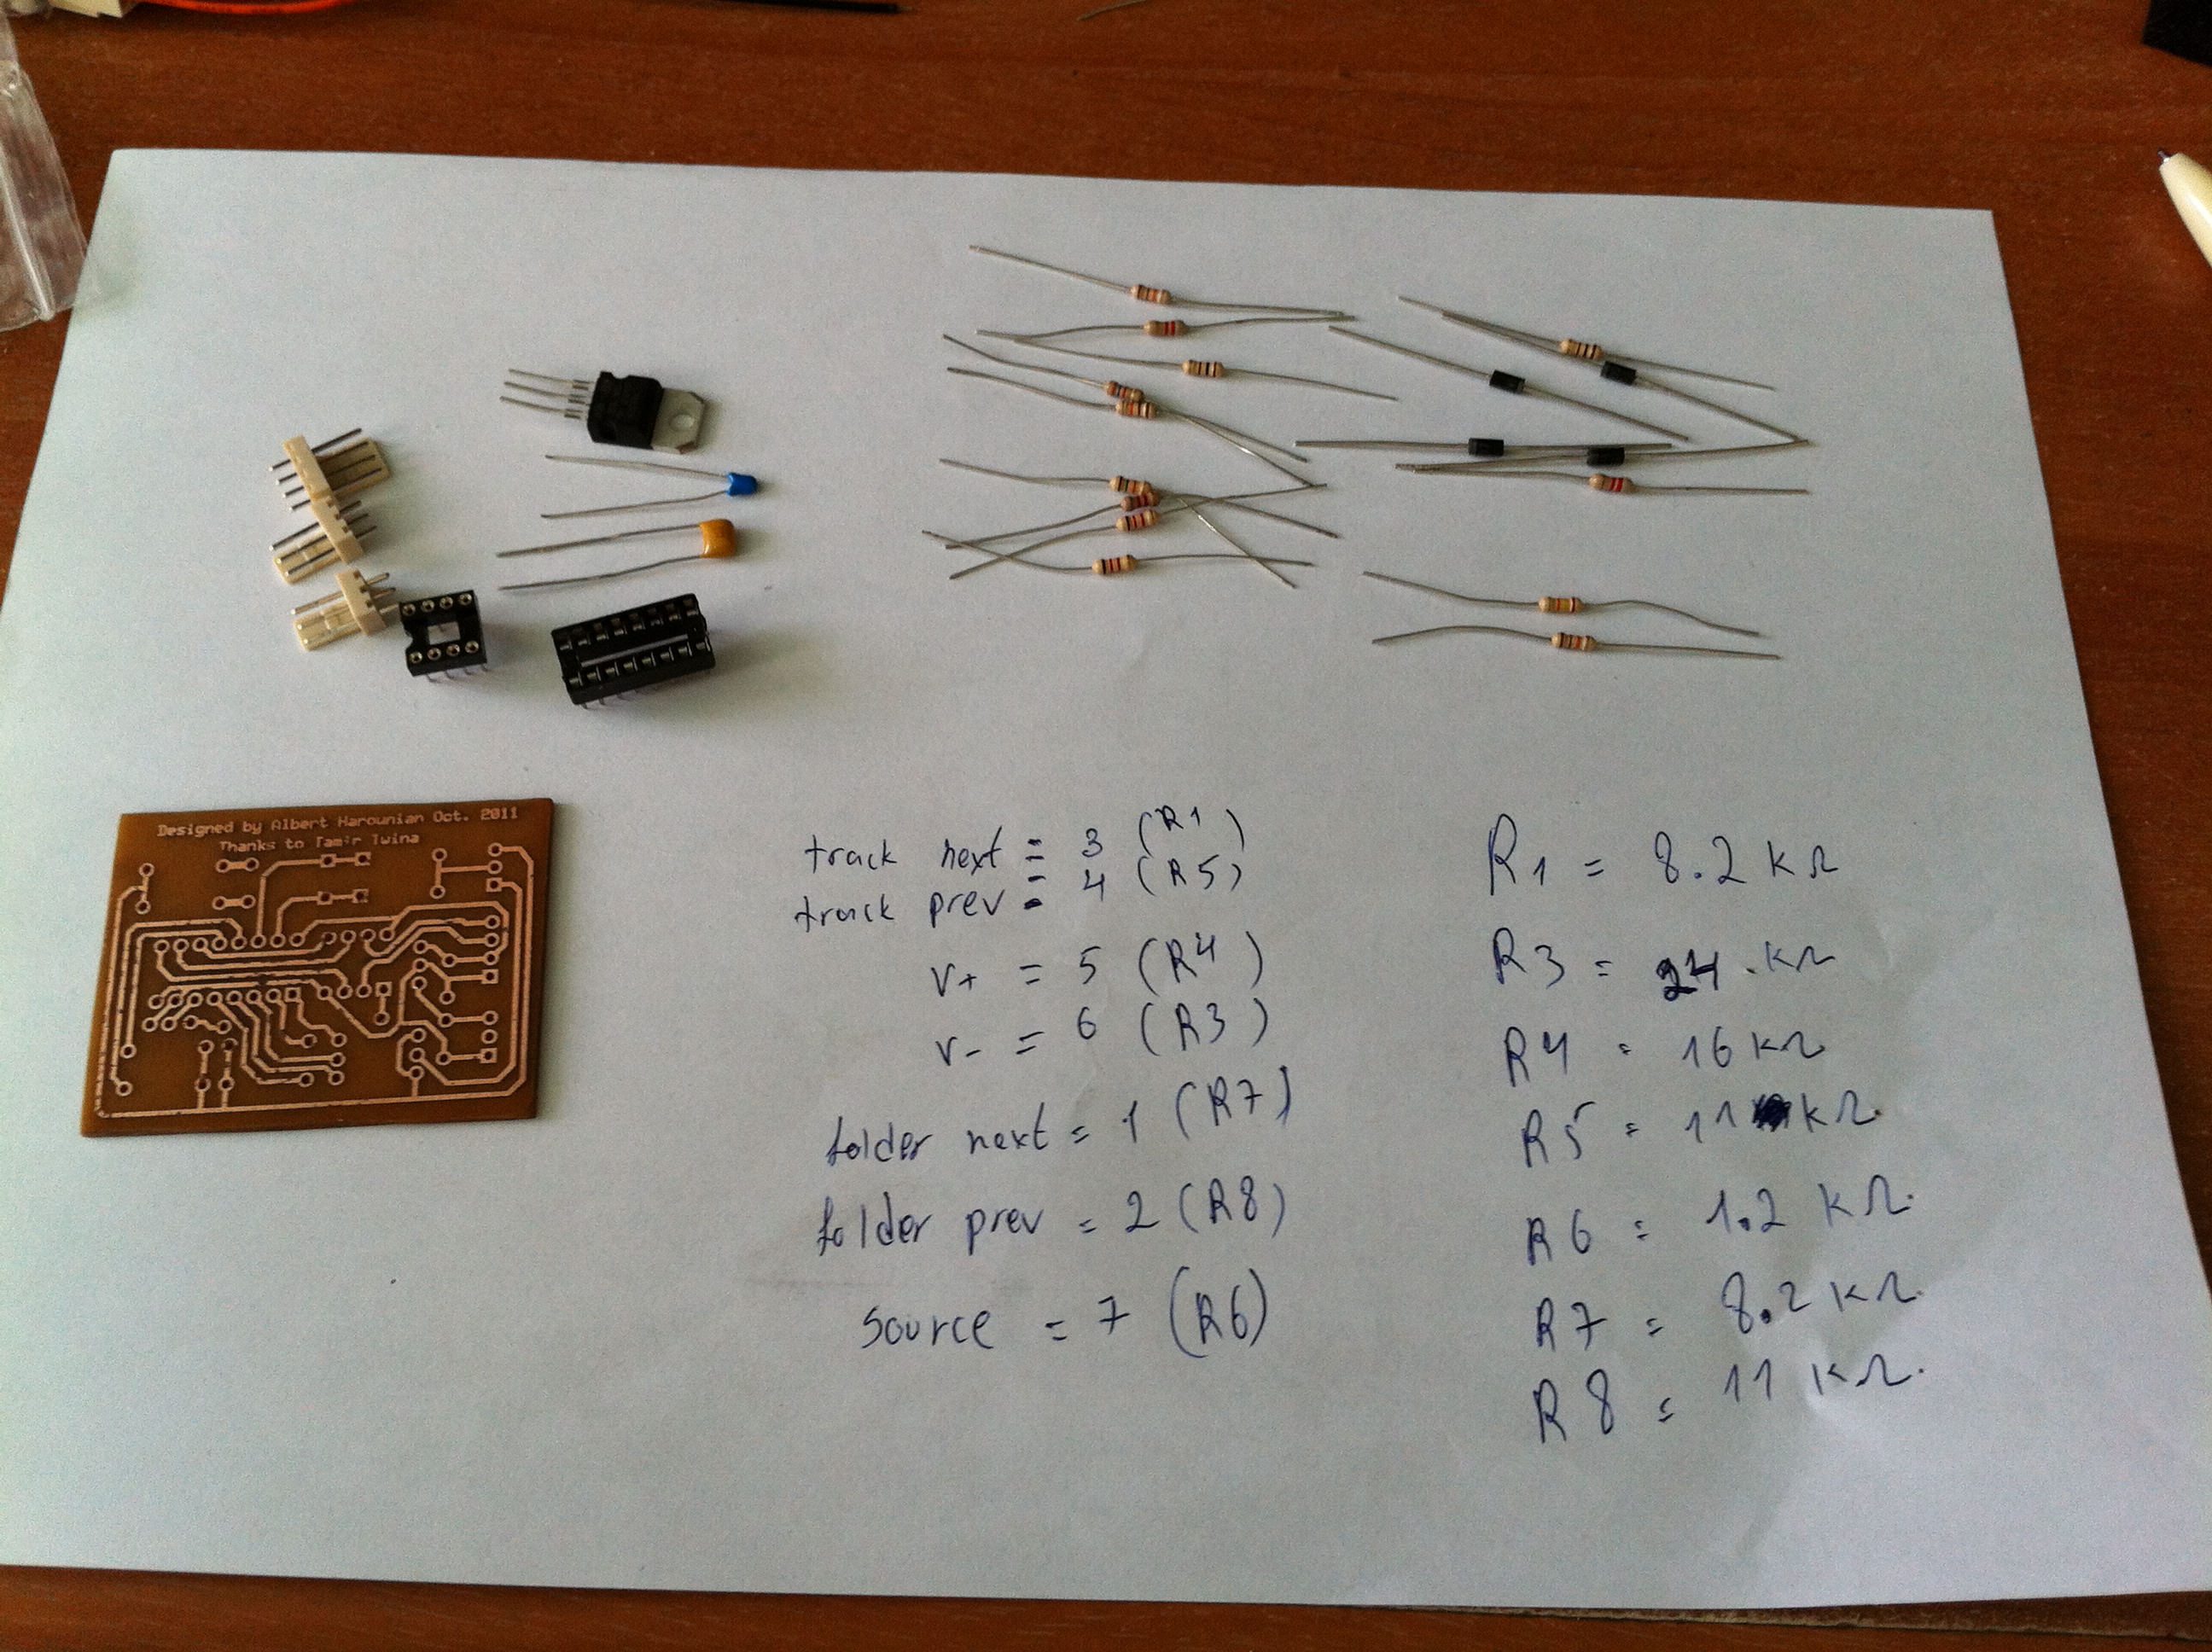 Designed by Albert Harounian Oct. 2011
Thanks to Tamir Twina
track next = 3 (R1)
track prev = 4 (R5)
v+ = 5 (R4)
v- = 6 (R3)
folder next = 1 (R7)
folder prev = 2 (R8)
source = 7 (R6)
R1 = 8.2 kΩ
R3 = 24 kΩ
R4 = 16 kΩ
R5 = 11 kΩ
R6 = 1.2 kΩ
R7 = 8.2 kΩ
R8 = 11 kΩ